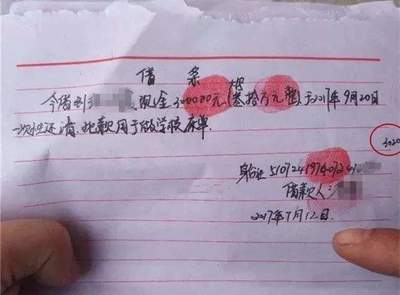 借 条
今借到 现金300000元(叁拾万元整)于2017年9月20日
一次性还清,此款用于做学校床单.
3020
身份证 510724197407249
借款人:
2017年7月12日.